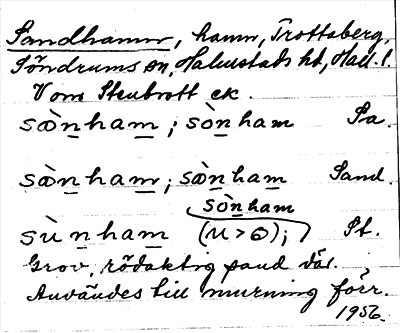 Sandhamn, hamn, Trottaberg,
Söndrums sn, Halmstads hd, Hall. l.
Vom Stenbrott ek.
sæ̀nham; sònham Sa.
sæ̀nham; sæ̀nham Sand.
sònham
sùnham (u>o); St.
Grov, rödaktig sand där.
Användes till murning förr.
1956.